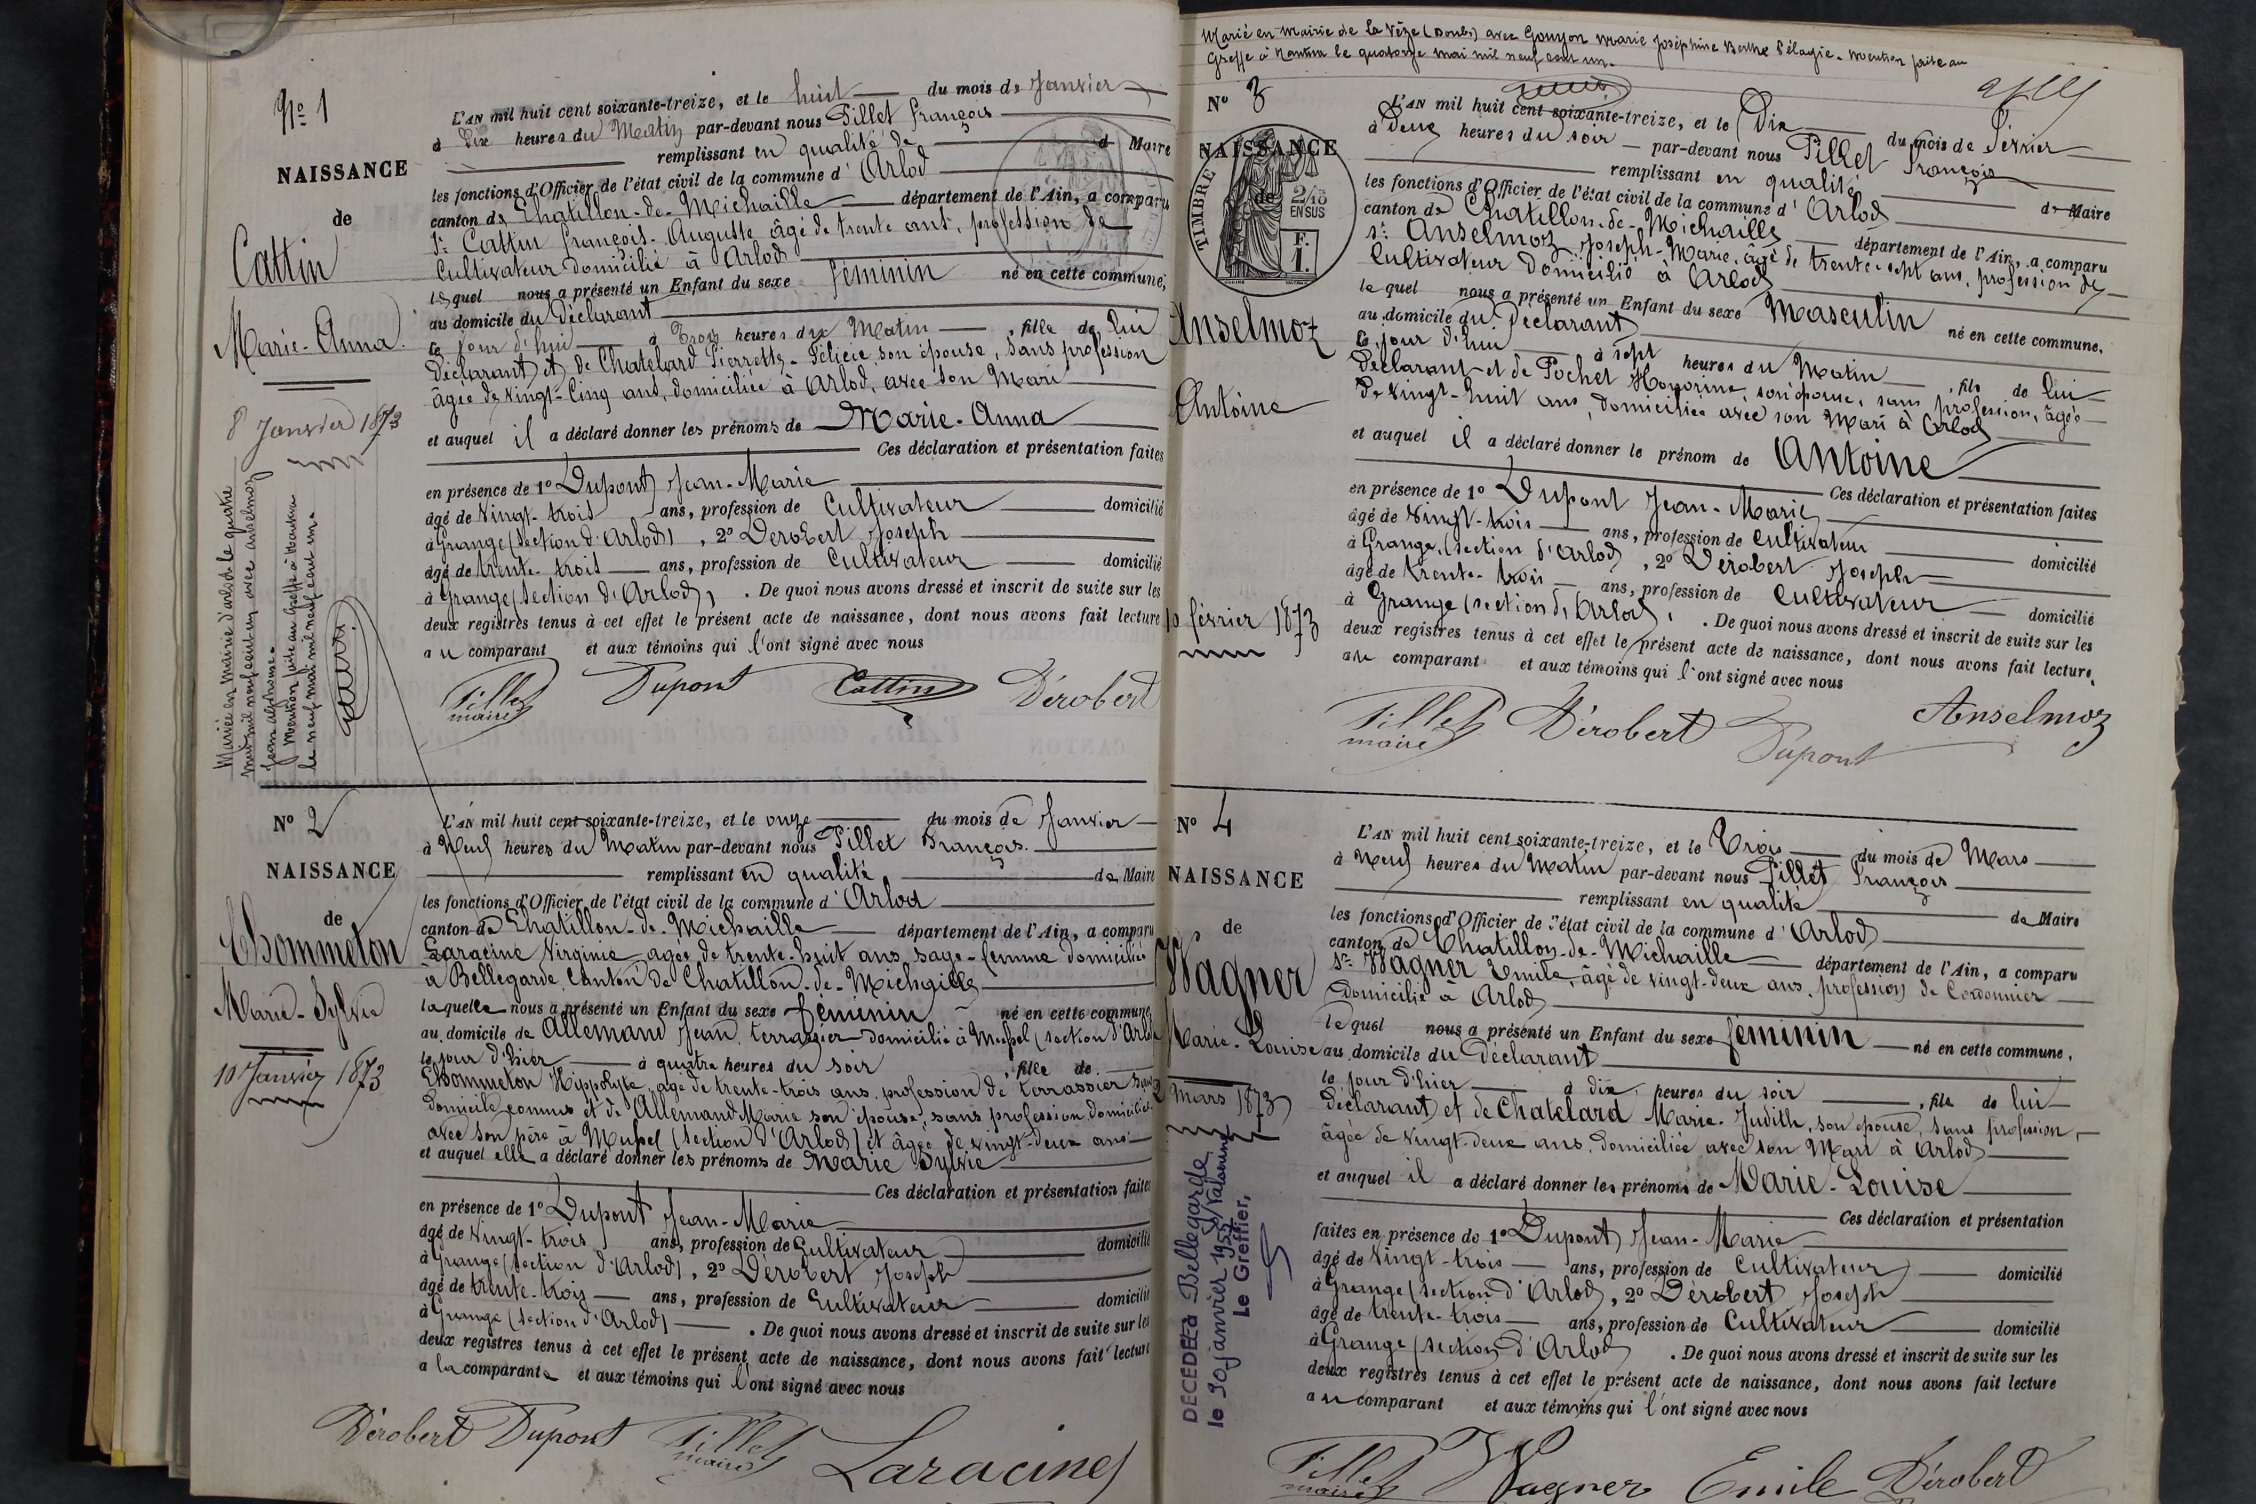 Nº 1
NAISSANCE
de
Cattin
Marie-Anna
8 Janvier 1873
Mariée en mairie d'arlod le quatre
mai mil neuf cent un avec anselmoz
jean alphonse.
Mention faite au greffe à Nantua
le neuf mai mil neuf cent un.
L'AN mil huit cent soixante-treize, et le huit du mois de Janvier
à Dix heures du Matin par-devant nous Pillet François
remplissant en qualité de Maire
les fonctions d'Officier de l'état civil de la commune d'Arlod
canton de Chatillon-de-Michaille département de l'Ain, a comparu
Sr. Cattin François-Auguste âgé de trente ans, profession de
Cultivateur domicilié à Arlod
lequel nous a présenté un Enfant du sexe féminin né en cette commune,
au domicile du Déclarant
ce jour d'hui à Trois heures du Matin, fille de lui
Déclarant et de Chatelard Pierrette-Félicie son épouse, sans profession
âgée de Vingt-Cinq ans, domiciliée à Arlod, avec son Mari
et auquel il a déclaré donner les prénoms de Marie-Anna
Ces déclaration et présentation faites
en présence de 1º Dupont Jean-Marie
âgé de Vingt-trois ans, profession de Cultivateur domicilié
à Grange (section d'Arlod), 2º Dérobert Joseph
âgé de trente-trois ans, profession de Cultivateur domicilié
à Grange (section d'Arlod), . De quoi nous avons dressé et inscrit de suite sur les
deux registres tenus à cet effet le présent acte de naissance, dont nous avons fait lecture
au comparant et aux témoins qui l'ont signé avec nous
Pillet
maire
Dupont
Cattin
Dérobert
Nº 2
NAISSANCE
de
Chommeton
Marie-Sylvie
10 Janvier 1873
L'AN mil huit cent soixante-treize, et le onze du mois de Janvier
à Neuf heures du Matin par-devant nous Pillet François
remplissant en qualité de Maire
les fonctions d'Officier de l'état civil de la commune d'Arlod
canton de Chatillon-de-Michaille département de l'Ain, a comparu
Laracine Virginie, agée de trente-huit ans, sage-femme domiciliée
à Bellegarde, Canton de Chatillon-de-Michaille
laquelle nous a présenté un Enfant du sexe féminin né en cette commune,
au domicile de Allemand Jean, terrassier domicilié à Mussel (section d'Arlod
le jour d'hier à quatre heures du soir, fille de
Chommeton Hippolyte, agé de trente-trois ans, profession de terrassier sans
domicile connus et de Allemand Marie son épouse, sans profession domiciliée
avec son père à Mussel (section d'Arlod) et âgée de vingt-deux ans
et auquel elle a déclaré donner les prénoms de Marie Sylvie
Ces déclaration et présentation faites
en présence de 1º Dupont Jean-Marie
âgé de Vingt-trois ans, profession de Cultivateur domicilié
à Grange (section d'Arlod), 2º Dérobert Joseph
âgé de trente-trois ans, profession de Cultivateur domicilié
à Grange (section d'Arlod) . De quoi nous avons dressé et inscrit de suite sur les
deux registres tenus à cet effet le présent acte de naissance, dont nous avons fait lecture
a la comparante et aux témoins qui l'ont signé avec nous
Dérobert
Dupont
Pillet
maire
Laracine
Marié en Mairie de la Vèze (Doubs) avec Gouyon Marie Joséphine Berthe Pélagie. Mention faite au
Greffe à Nantua le quatorze mai mil neuf cent un.
Nº 3
TIMBRE
2/10
EN SUS
F.
1.
NAISSANCE
de
Anselmoz
Antoine
10 février 1873
L'AN mil huit cent soixante-treize, et le Dix du mois de Février
à Deux heures du soir par-devant nous Pillet François
remplissant en qualité de Maire
les fonctions d'Officier de l'état civil de la commune d'Arlod
canton de Chatillon-de-Michaille département de l'Ain, a comparu
Sr. Anselmoz Joseph-Marie, âgé de trente-sept ans, profession de
Cultivateur Domicilié à Arlod
lequel nous a présenté un Enfant du sexe Masculin né en cette commune,
au domicile du Déclarant
ce jour d'hui à sept heures du Matin, fils de lui
Déclarant et de Pochet Honorine, son épouse, sans profession, âgée
de Vingt-huit ans, domiciliée avec son Mari à Arlod
et auquel il a déclaré donner le prénom de Antoine
Ces déclaration et présentation faites
en présence de 1º Dupont Jean-Marie
âgé de Vingt-trois ans, profession de Cultivateur domicilié
à Grange, (section d'Arlod), 2º Dérobert Joseph
âgé de trente-trois ans, profession de Cultivateur domicilié
à Grange (section d'Arlod) . De quoi nous avons dressé et inscrit de suite sur les
deux registres tenus à cet effet le présent acte de naissance, dont nous avons fait lecture,
au comparant et aux témoins qui l'ont signé avec nous
Pillet
maire
Dérobert
Dupont
Anselmoz
Nº 4
NAISSANCE
de
Wagner
Marie-Louise
2 Mars 1873
DECEDEE à Bellegarde
le 30 janvier 1955 s/Valserine
Le Greffier,
L'AN mil huit cent soixante-treize, et le Trois du mois de Mars
à Neuf heures du Matin par-devant nous Pillet François
remplissant en qualité de Maire
les fonctions d'Officier de l'état civil de la commune d'Arlod
canton de Chatillon-de-Michaille département de l'Ain, a comparu
Sr. Wagner Emile, âgé de vingt-deux ans, profession de Cordonnier
Domicilié à Arlod
lequel nous a présenté un Enfant du sexe féminin né en cette commune,
au domicile du Déclarant
le jour d'hier à dix heures du soir, fille de lui
Déclarant et de Chatelard Marie-Judith, son épouse, sans profession,
âgée de Vingt-deux ans, domiciliée avec son Mari à Arlod
et auquel il a déclaré donner les prénoms de Marie-Louise
Ces déclaration et présentation
faites en présence de 1º Dupont Jean-Marie
âgé de Vingt-trois ans, profession de Cultivateur domicilié
à Grange (section d'Arlod, 2º Dérobert Joseph
âgé de trente-trois ans, profession de Cultivateur domicilié
à Grange (section d'Arlod . De quoi nous avons dressé et inscrit de suite sur les
deux registres tenus à cet effet le présent acte de naissance, dont nous avons fait lecture
au comparant et aux témoins qui l'ont signé avec nous
Pillet
maire
Wagner Emile
Dérobert